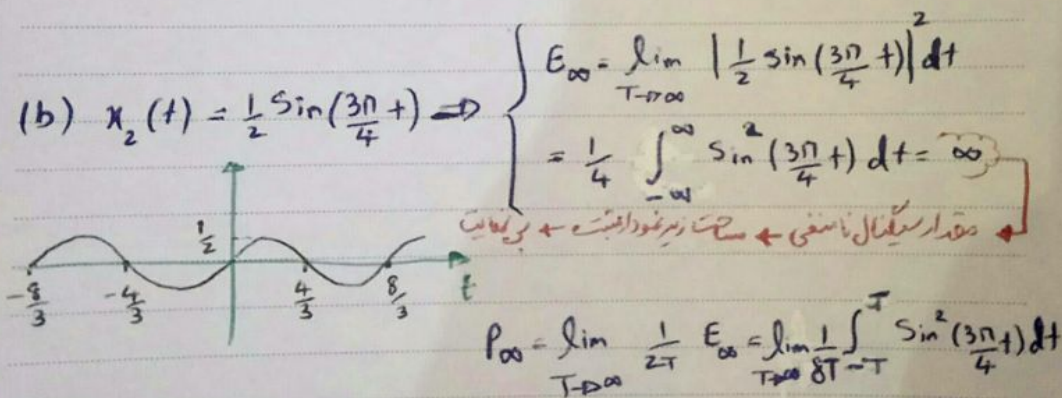 E∞ = lim T→∞ |1/2 sin(3π/4 t)|² dt
(b) x₂(t) = 1/2 Sin(3π/4 t) ⇒
= 1/4 ∫_{-∞}^{∞} Sin² (3π/4 t) dt = ∞
مقدار سیگنال نامنفی ← مساحت زیر نمودار مثبت ← بی نهایت
1/2
-8/3 -4/3 4/3 8/3 t
P∞ = lim T→∞ 1/2T E∞ = lim T→∞ 1/8T ∫_{-T}^{T} Sin² (3π/4 t) dt